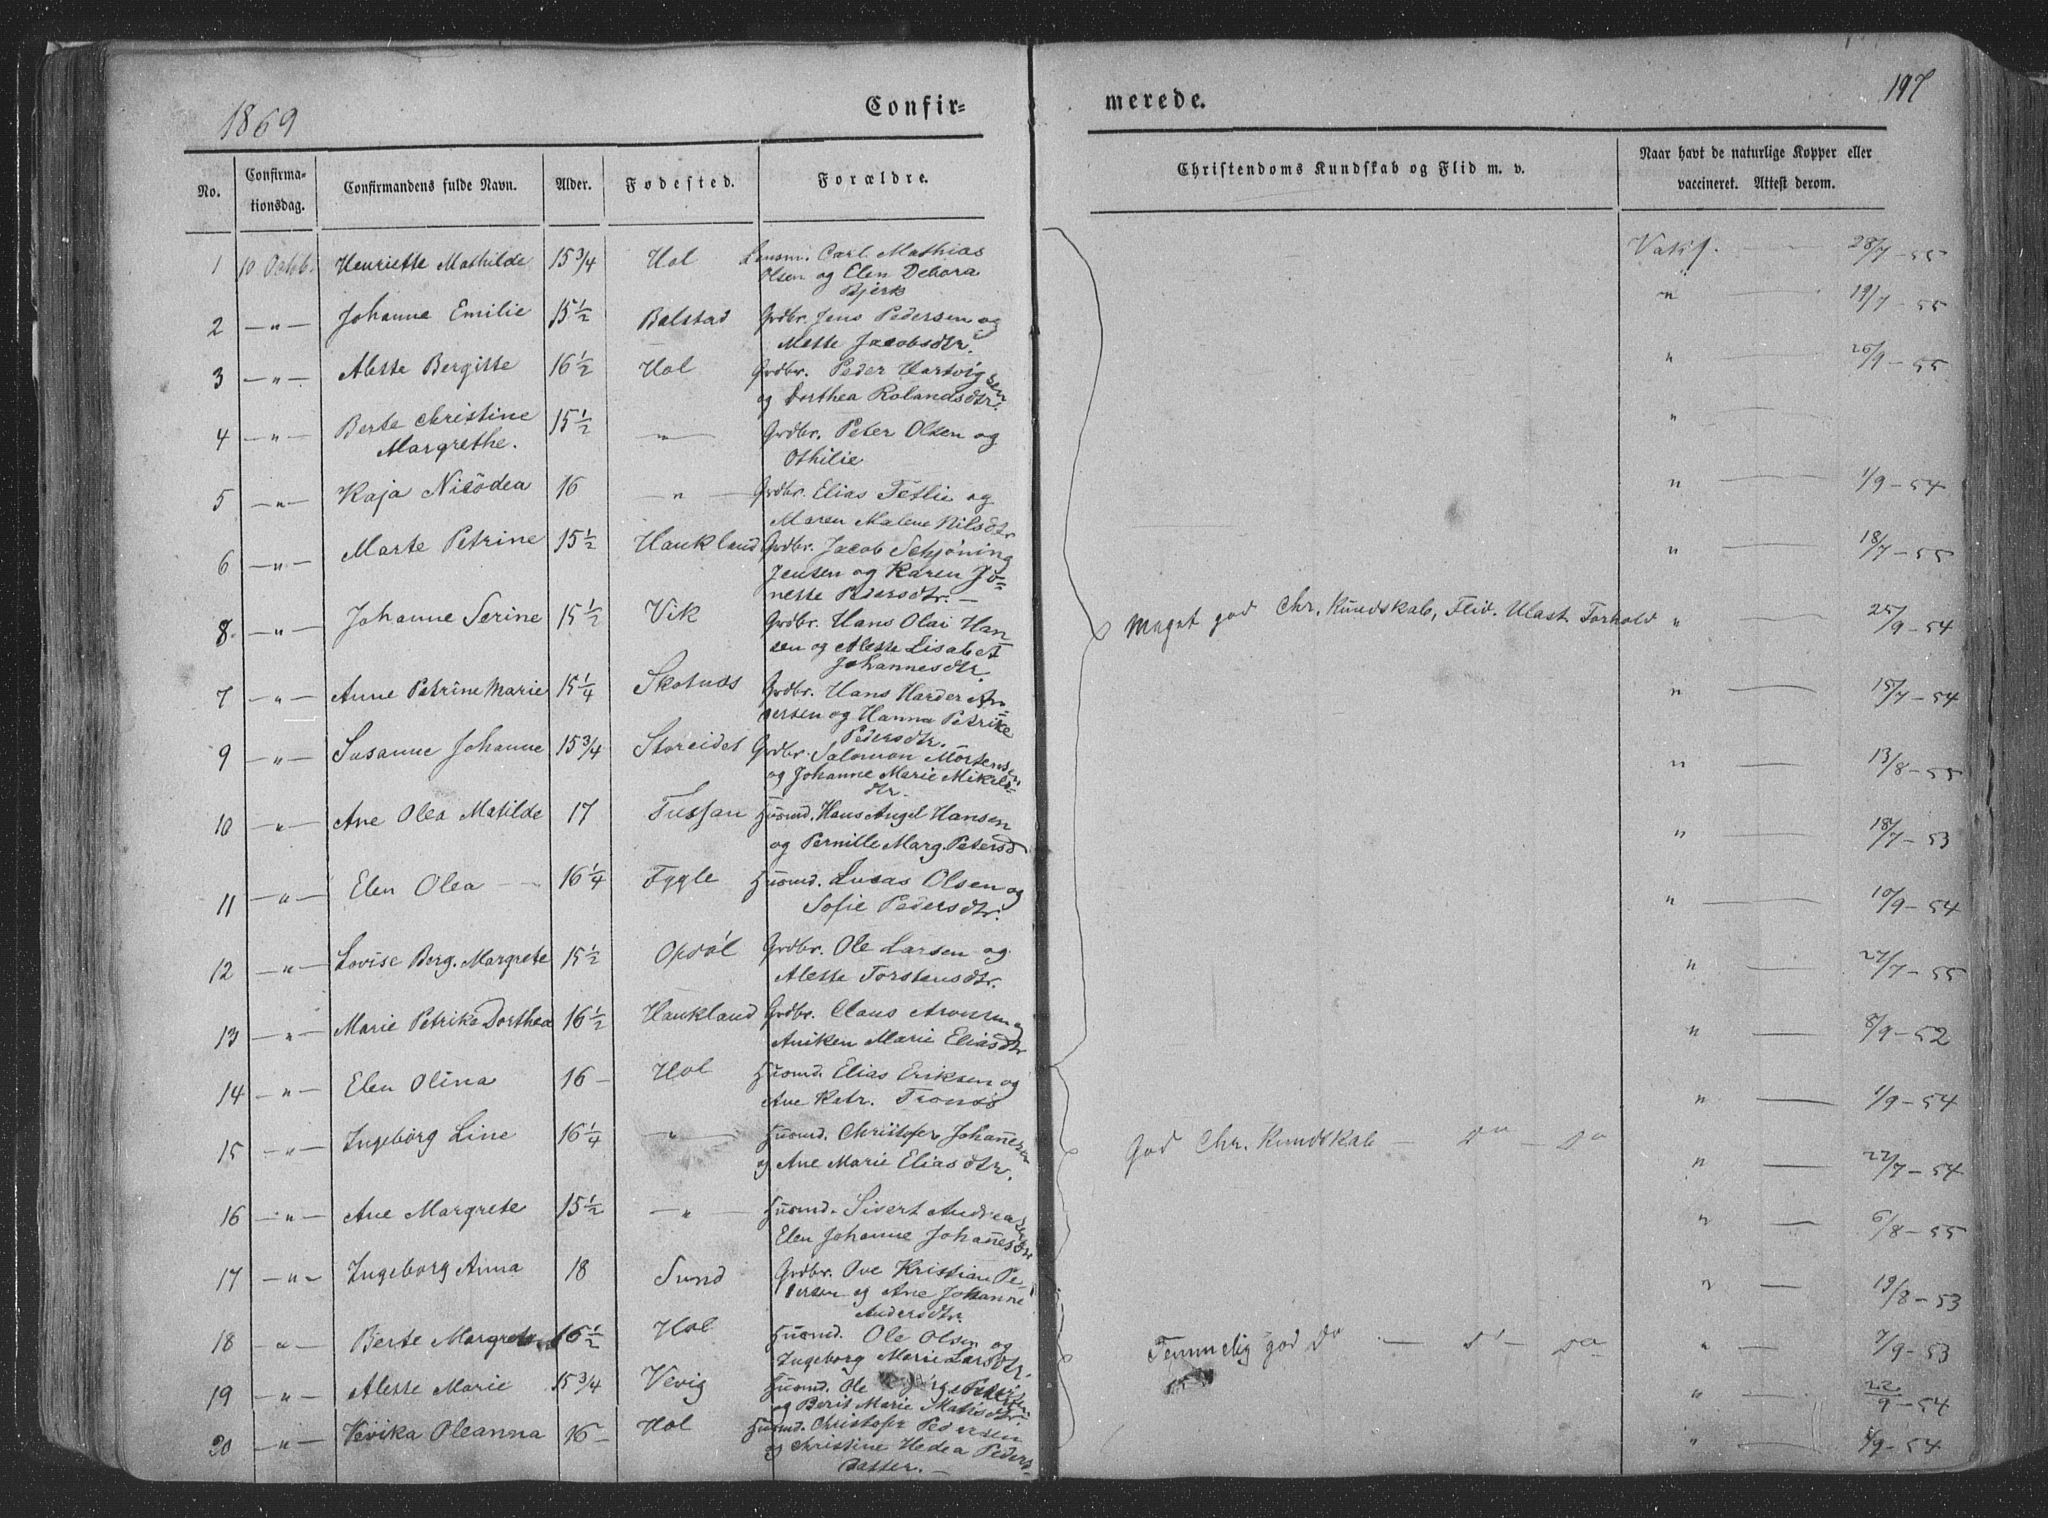 1869
Confir- merede.
197
No. Confirma-tionsdag. Confirmandens fulde Navn. Alder. Fodested. Forældre. Christendoms Kundskab og Flid m. v. Naar havt de naturlige Kopper eller vaccineret. Attest derom.
1 10 Octbr. Henriette Mathilde 15 3/4 Hol Lensm. Carl Mathias 28/7 - 55
Olsen og Elen Debora
Bjerk
2 " Johanna Emilie 15 1/2 Balstad Grdbr. Jens Pedersen og " 19/7 - 55
Mette Jacobsdtr.
3 " Alette Bergitte 16 1/2 Hol Grdbr. Peder Hartvigsen " 26/9 - 55
og Dorthea Rolandsdtr.
4 " Berte Christine 15 1/2 " Grdbr. Peter Olsen og "
Margrethe. Othilie
5 " Kaja Nicodea 16 " Grdbr. Elias Tetlie og " 1/9 - 54
Maren Malene Nilsdtr
6 " Marte Petrine 15 1/2 Haukland Grdbr. Jacob Schjøning " 18/7 - 55
Jensen og Karen Jo=
nette Pedersdtr. -
8. " Johanne Serine 15 1/2 Vik Grdbr. Hans Olai Han Meget god Chr. Kundskab, Flid. Ulast. Forhold " 25/9 - 54
sen og Alette Lisabet
Johannesdtr.
7 " Anne Petrine Marie 15 1/4 Skotnæs Grdbr. Hans Harder An " 15/7 - 54
dersen og Hanna Petrike
Pedersdtr.
9 " Susanne Johanne 15 3/4 Storeidet Grdbr. Salomon Mortensen " 13/8 - 55
og Johanne Marie Mikels=
dtr.
10 " Ane Olea Matilde 17 Tussan Huusmd. Hans Angel Hansen " 18/7 - 53
og Pernille Marg. Petersd
11 " Elen Olea 16 1/4 Fygle Huusmd. Lucas Olsen og " 10/9 - 54
Sofie Pedersdtr.
12 " Lovise Berg. Margrete 15 1/2 Opdøl Grdbr. Ole Larsen og " 27/7 - 55
Alette Torstensdtr.
13 " Marie Petrika Dorthea 16 1/2 Haukland Grdbr. Claus Aronsen og " 8/9 - 52
Aniken Marie Eliasdtr
14 " Elen Olina 16 - Hol Huusmd. Elias Eriksen og " 1/9 - 54
Ane Katr. Tronsd
15 " Ingeborg Line 16 1/4 " Huusmd. Christofer Johannesen God Chr. Kundskab - do - do " 22/7 - 54
og Ane Marie Eliasdtr.
16 " Ane Margrete 15 1/2 " Huusmd. Sivert Andreassen " 6/8 - 55
Elen Johanne Johannesdtr
17 " Ingeborg Anna 18 Sund Grdbr. Ove Kristian Pe- " 19/8 - 53
dersen og Ane Johanne
Andersdtr.
18 " Berte Margrete 16 1/2 Hol Huusmd. Ole Olsen og Temmelig god do - do - do " 7/9 - 53
Ingeborg Marie Larsdtr.
19 " Alette Marie 15 3/4 Vevig Huusmd. Ole " 22/9 - 54
og Berit Marie Matisdtr.
20 " Vevika Oleanna 16 - Hol Huusmd. Christofer Pedersen " 1/9 - 54
og Christine Hedea Peders-
datter. -